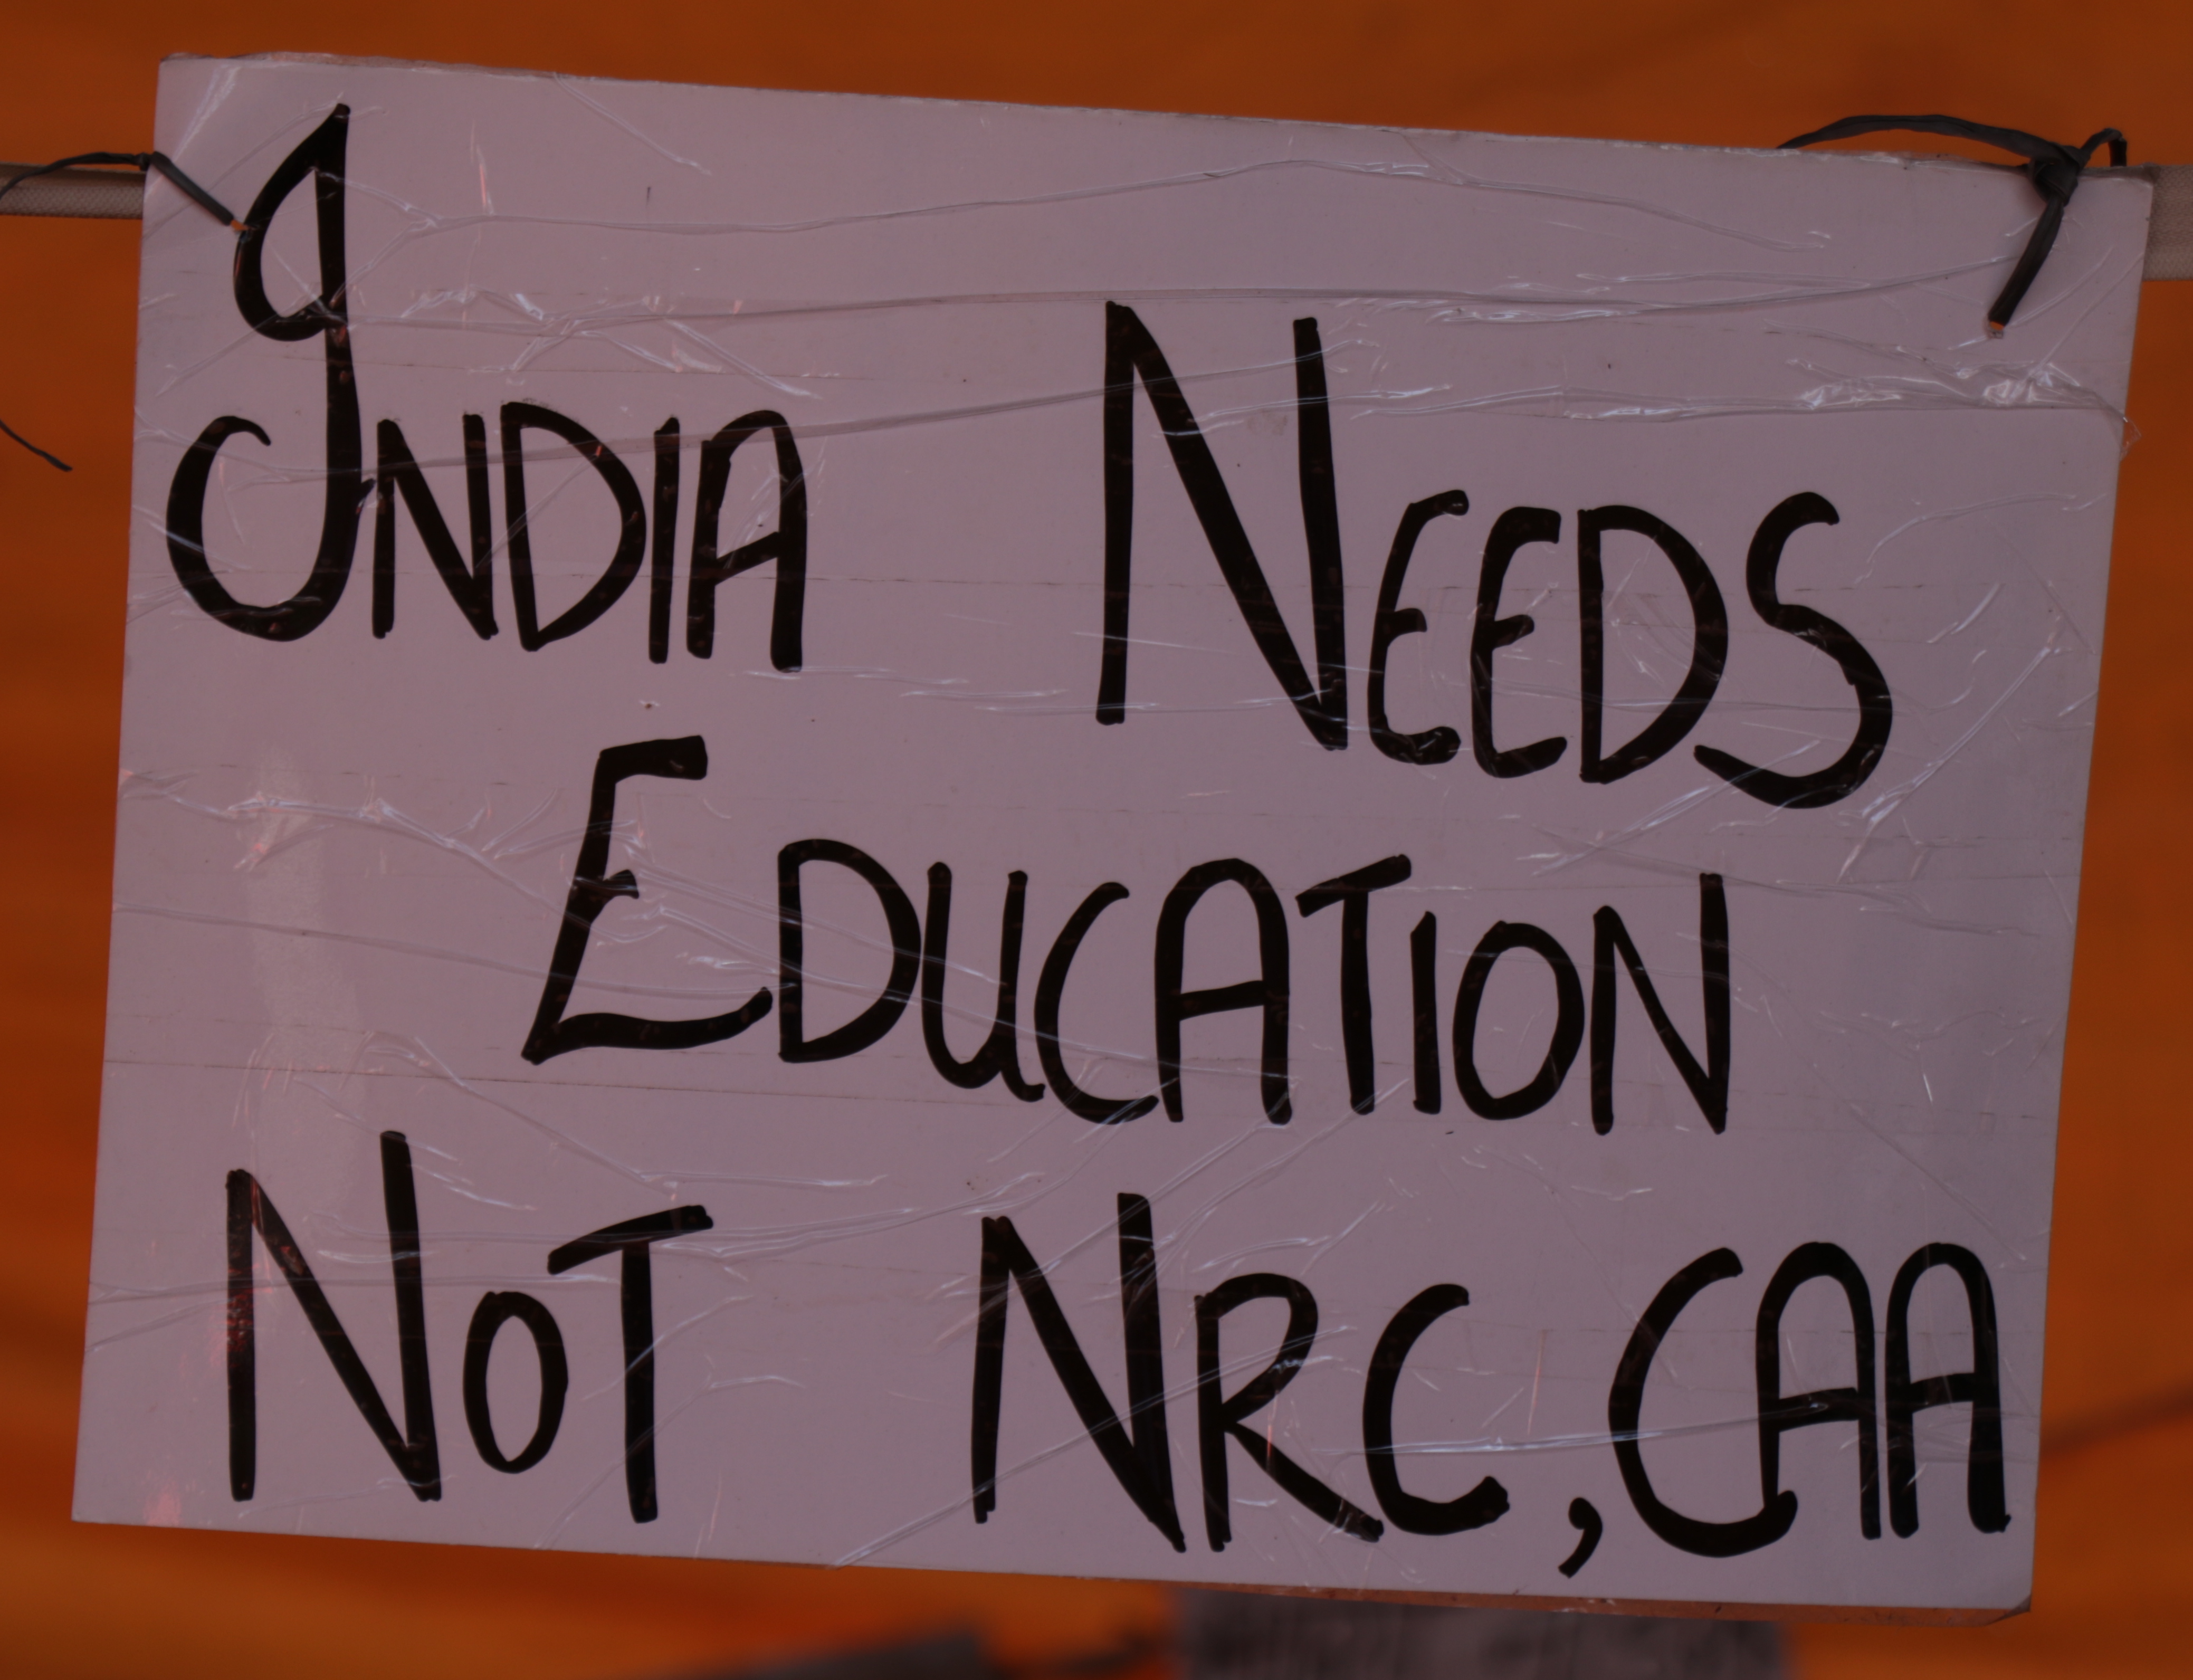 INDIA NEEDS
EDUCATION
NOT NRC, CAA